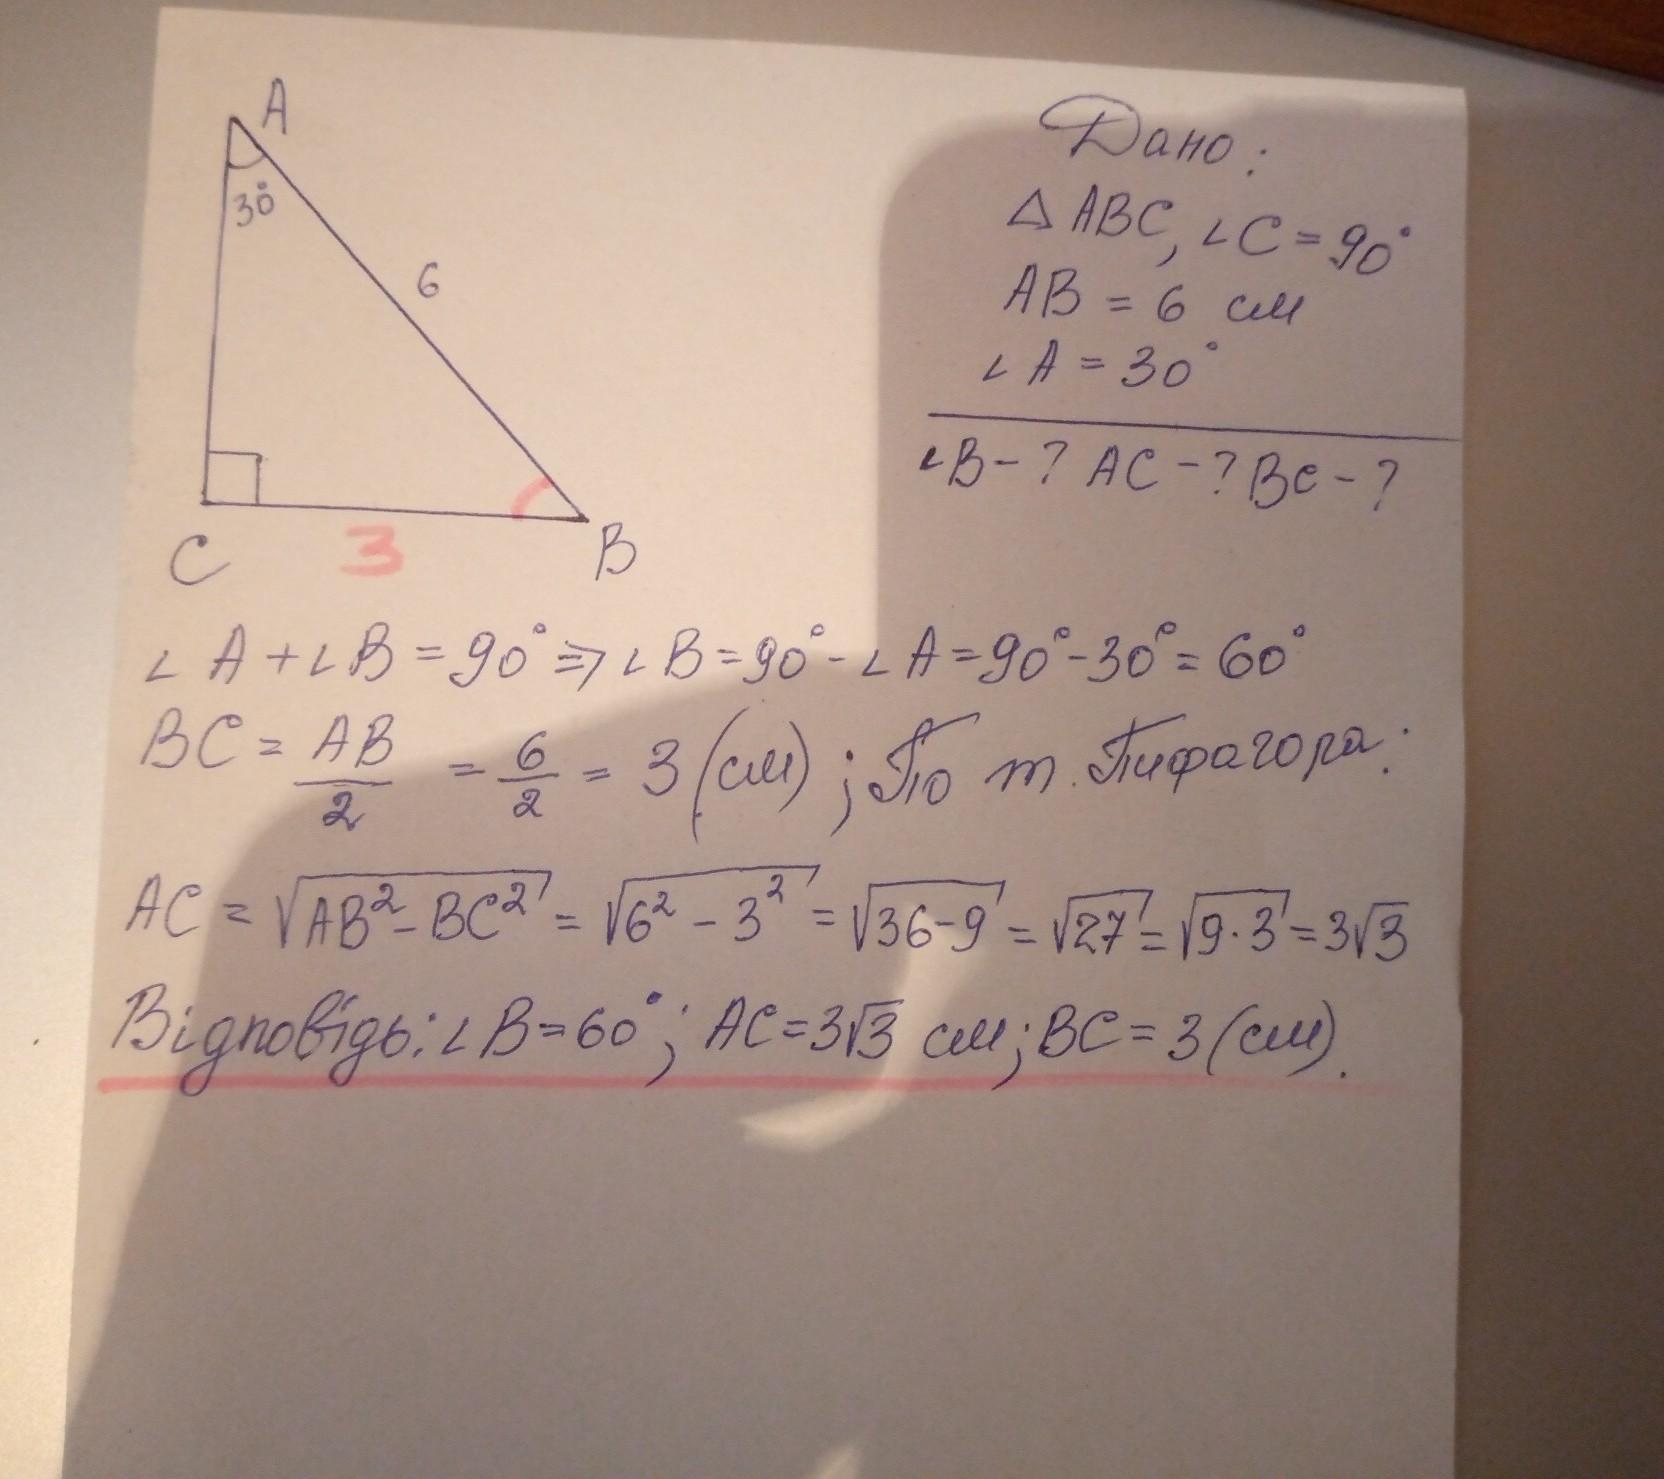 A
30°
6
C
3
B
Дано:
△ ABC, ∠C = 90°
AB = 6 см
∠A = 30°
∠B - ? AC - ? BC - ?
∠A + ∠B = 90° ⇒ ∠B = 90° - ∠A = 90° - 30° = 60°
BC = AB/2 = 6/2 = 3 (см); По т. Пифагора:
AC = √(AB² - BC²) = √(6² - 3²) = √(36-9) = √27 = √(9·3) = 3√3
Відповідь: ∠B = 60°; AC = 3√3 см; BC = 3 (см).